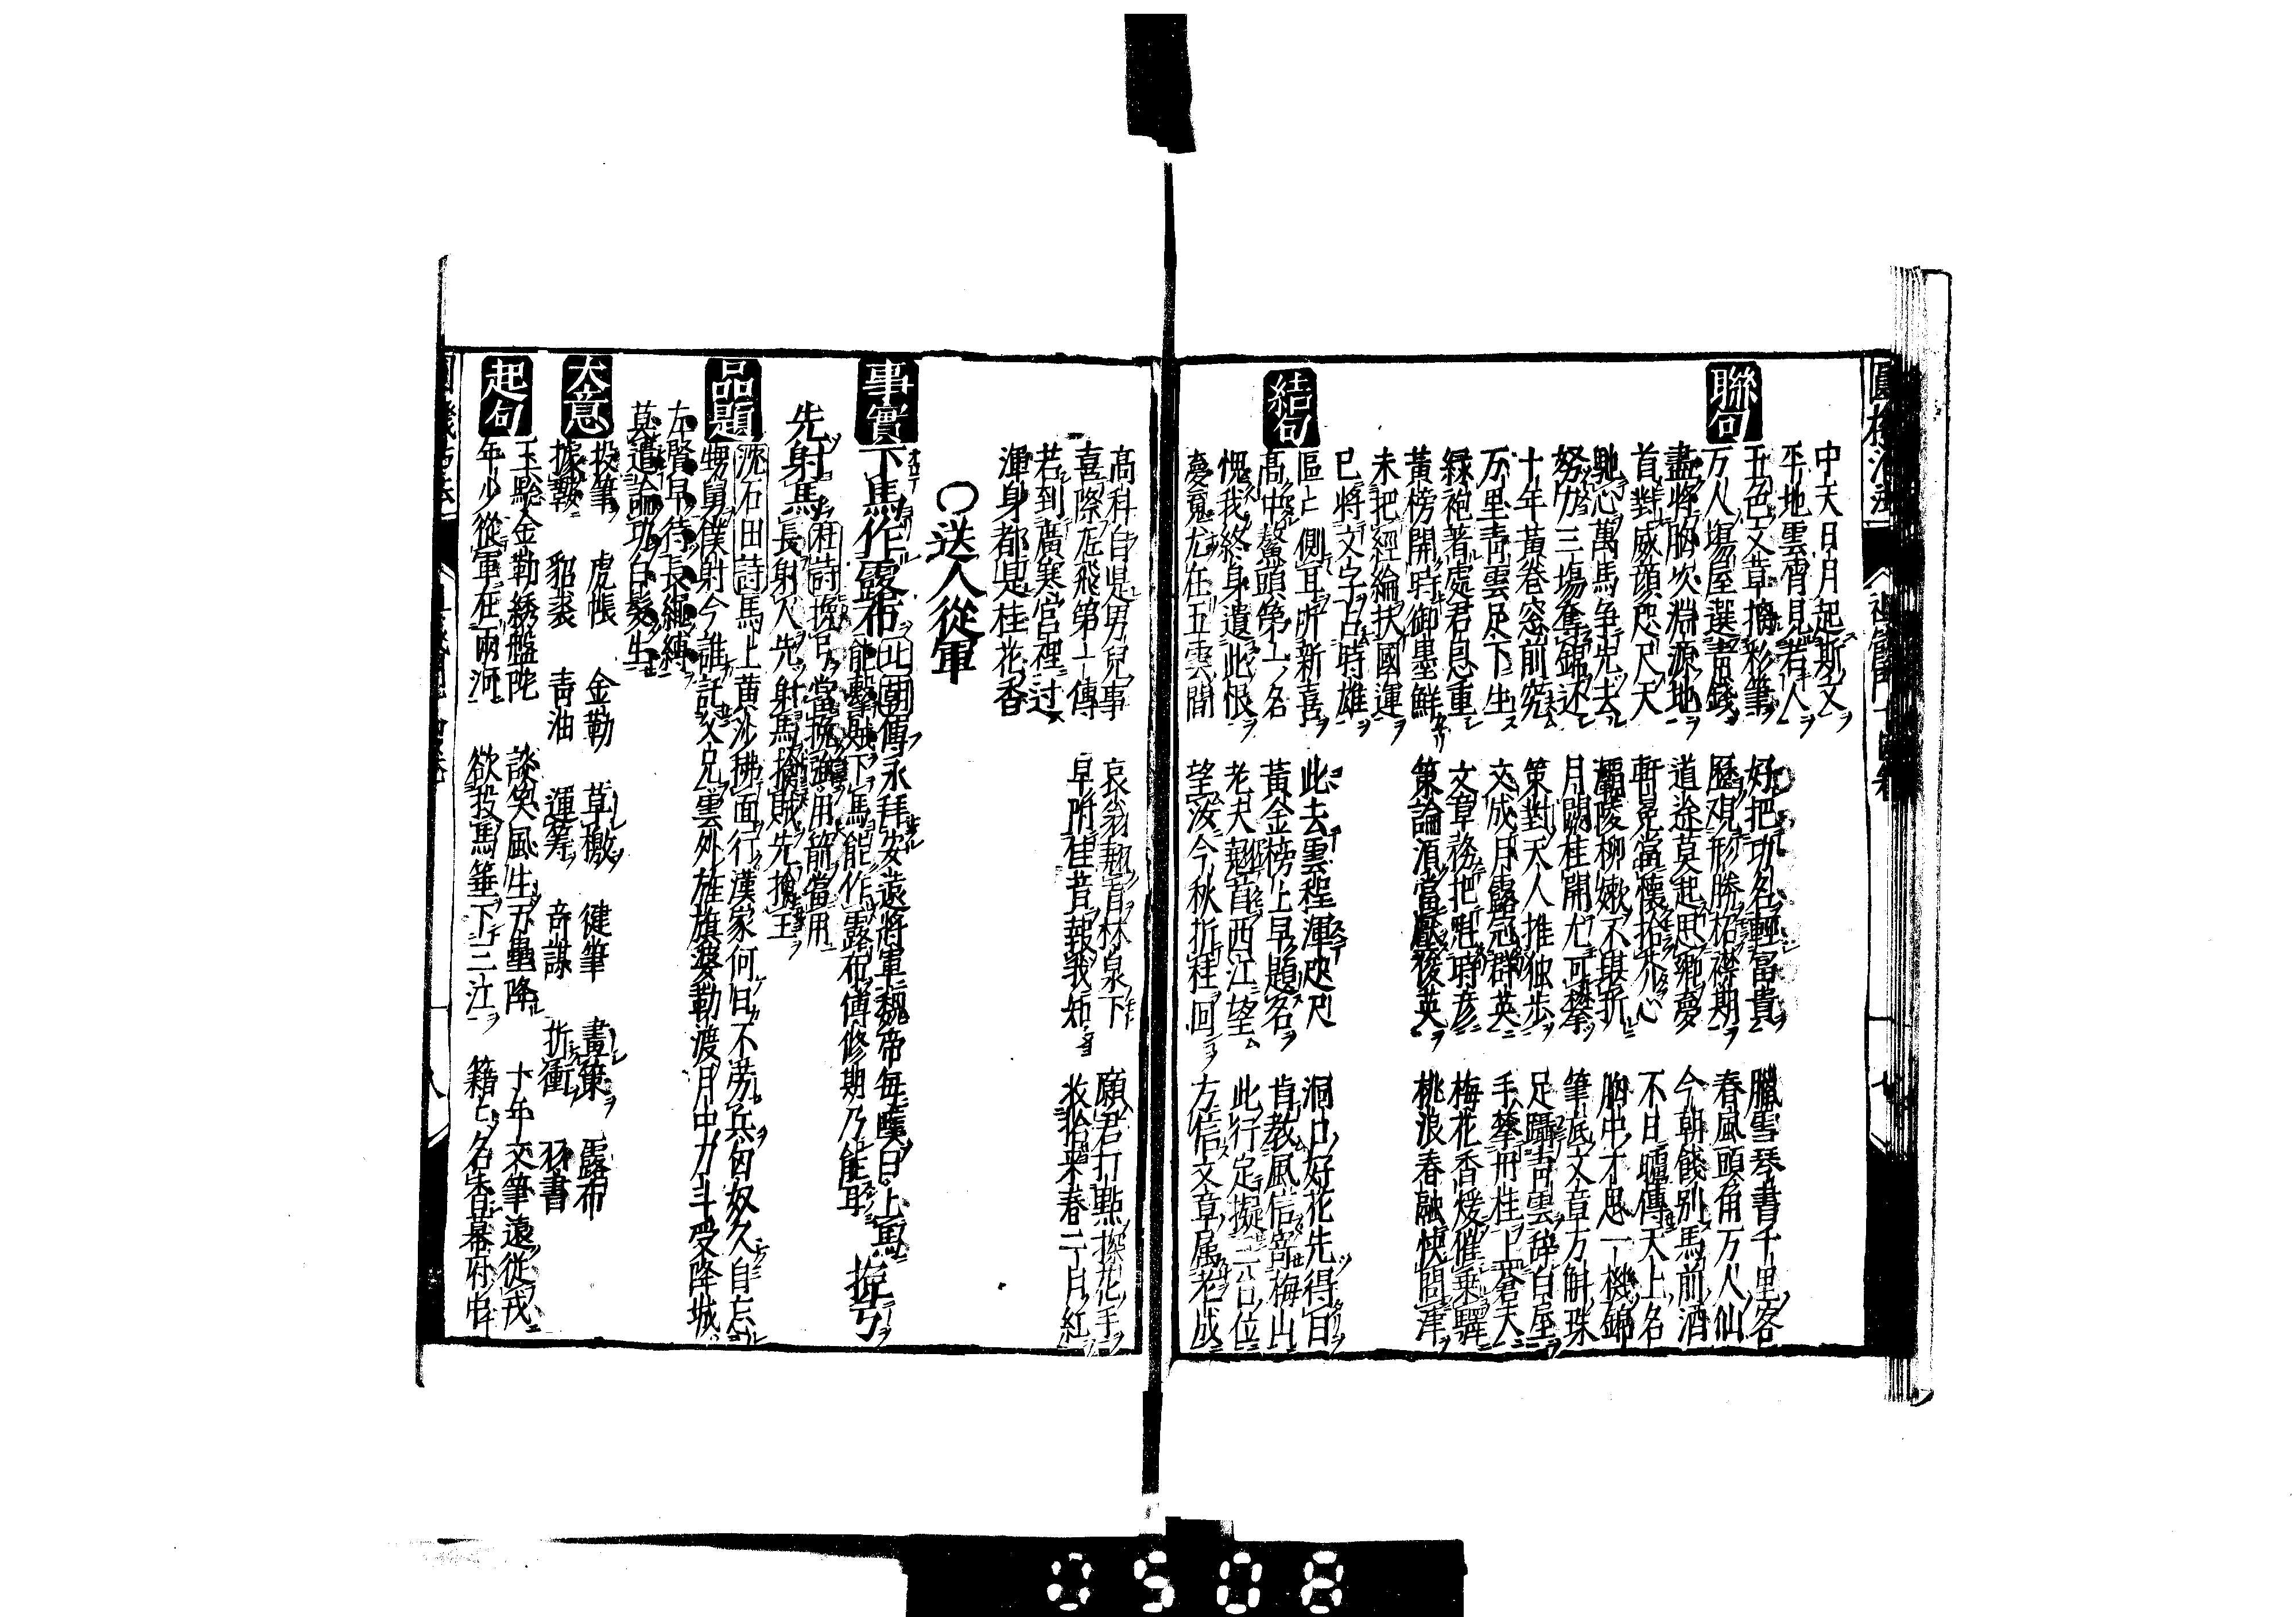 聯句
中天日月起斯文
平地雲霄見若人
五色文章摛彩筆
好把功名輕富貴
臘雪琴書千里客
万人塲屋選青錢
歷观形勝招襟期
春風頭角万人仙
盡將胸次淵源地
道途莫起思鄉夢
今朝餞别馬前酒
首對威顔咫尺天
軒冕當懷拾芥心
不日臚傳天上名
馳心萬馬争先去
灞陵柳嫩不堪折
胸中才思一機錦
努力三塲奪錦还
月闕桂開尤可攀
筆底文章万斛珠
十年黄卷窓前究
策對天人推独步
足躡青雲辞白屋
万里青雲足下生
文成月露冠群英
手攀丹桂上蒼天
緑袍著處君恩重
文章務把魁時彦
梅花香煖催乗驛
黃榜開時御墨鮮
策論須當壓俊英
桃浪春融快問津
未把經綸扶國運
已將文字占時雄
結句
區〻側耳听新喜
此去雲程渾咫尺
洞口好花先得白
高中鰲頭第一名
黃金榜上早題名
肯教風信寄梅山
愧我終身遺此恨
老夫翹首西江望
此行定擬三公位
夢䰟尤在五雲間
望汝今秋折桂回
方信文章属老成
高科自是男兒事
哀翁翹首林泉下
願君打點探花手
喜際庭飛第一傳
早附佳音報我知
收拾来春二月紅
若到廣寒宮裡过
渾身都是桂花香
〇送人從軍
事實
下馬作露布
北周傳永拜安遠將軍魏帝每嘆曰上馬
能擊賊下馬能作露布傅修期乃能耳
挽弓
杜詩挽弓當挽強用箭當用
長射人先射馬擒賊先擒王
先射馬
品題
沈石田詩馬上黄沙拂面行漢家何日不勞兵匈奴久自忘
甥舅僕射今誰託父兄雲外旌旗婆勒渡月中刀斗受降城
左賢早待長繩縛
莫遣論功白髮生
大意
投筆
虎帳
金勒
草檄
健筆
畫策
露布
據鞍
貂裘
青油
運籌
奇謀
折衝
羽書
起句
玉驄金勒綉盤陀
談笑風生万壘降
十年文筆遠從戎
年少從軍在兩河
欲投馬箠下三江
籍〻名香幕府中